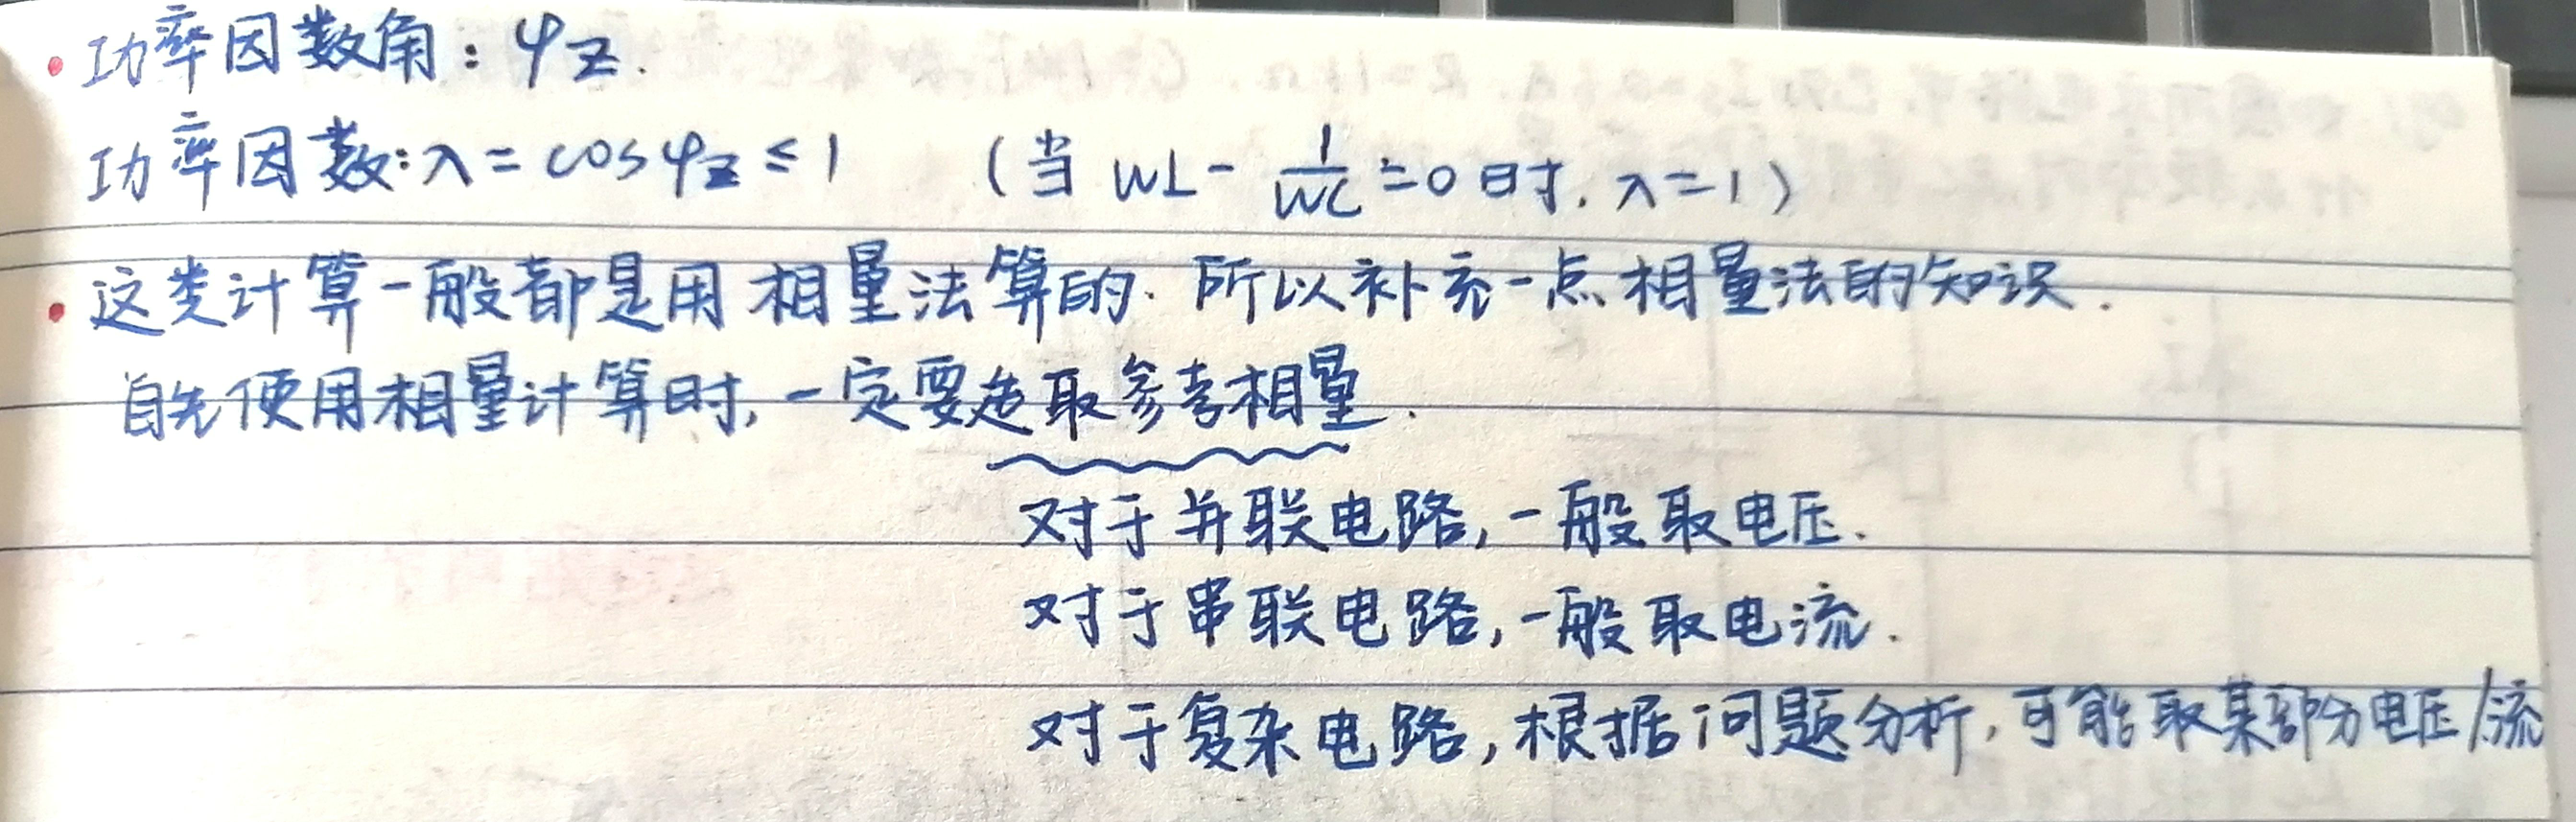 • 功率因数角：φz.
功率因数：λ = cosφz ≤ 1 （当 wL - 1/wC = 0 时, λ = 1）
• 这类计算一般都是用相量法算的. 所以补充一点相量法的知识.
首先使用相量计算时, 一定要选取参考相量.
对于并联电路, 一般取电压.
对于串联电路, 一般取电流.
对于复杂电路, 根据问题分析, 可能取某部分电压/流